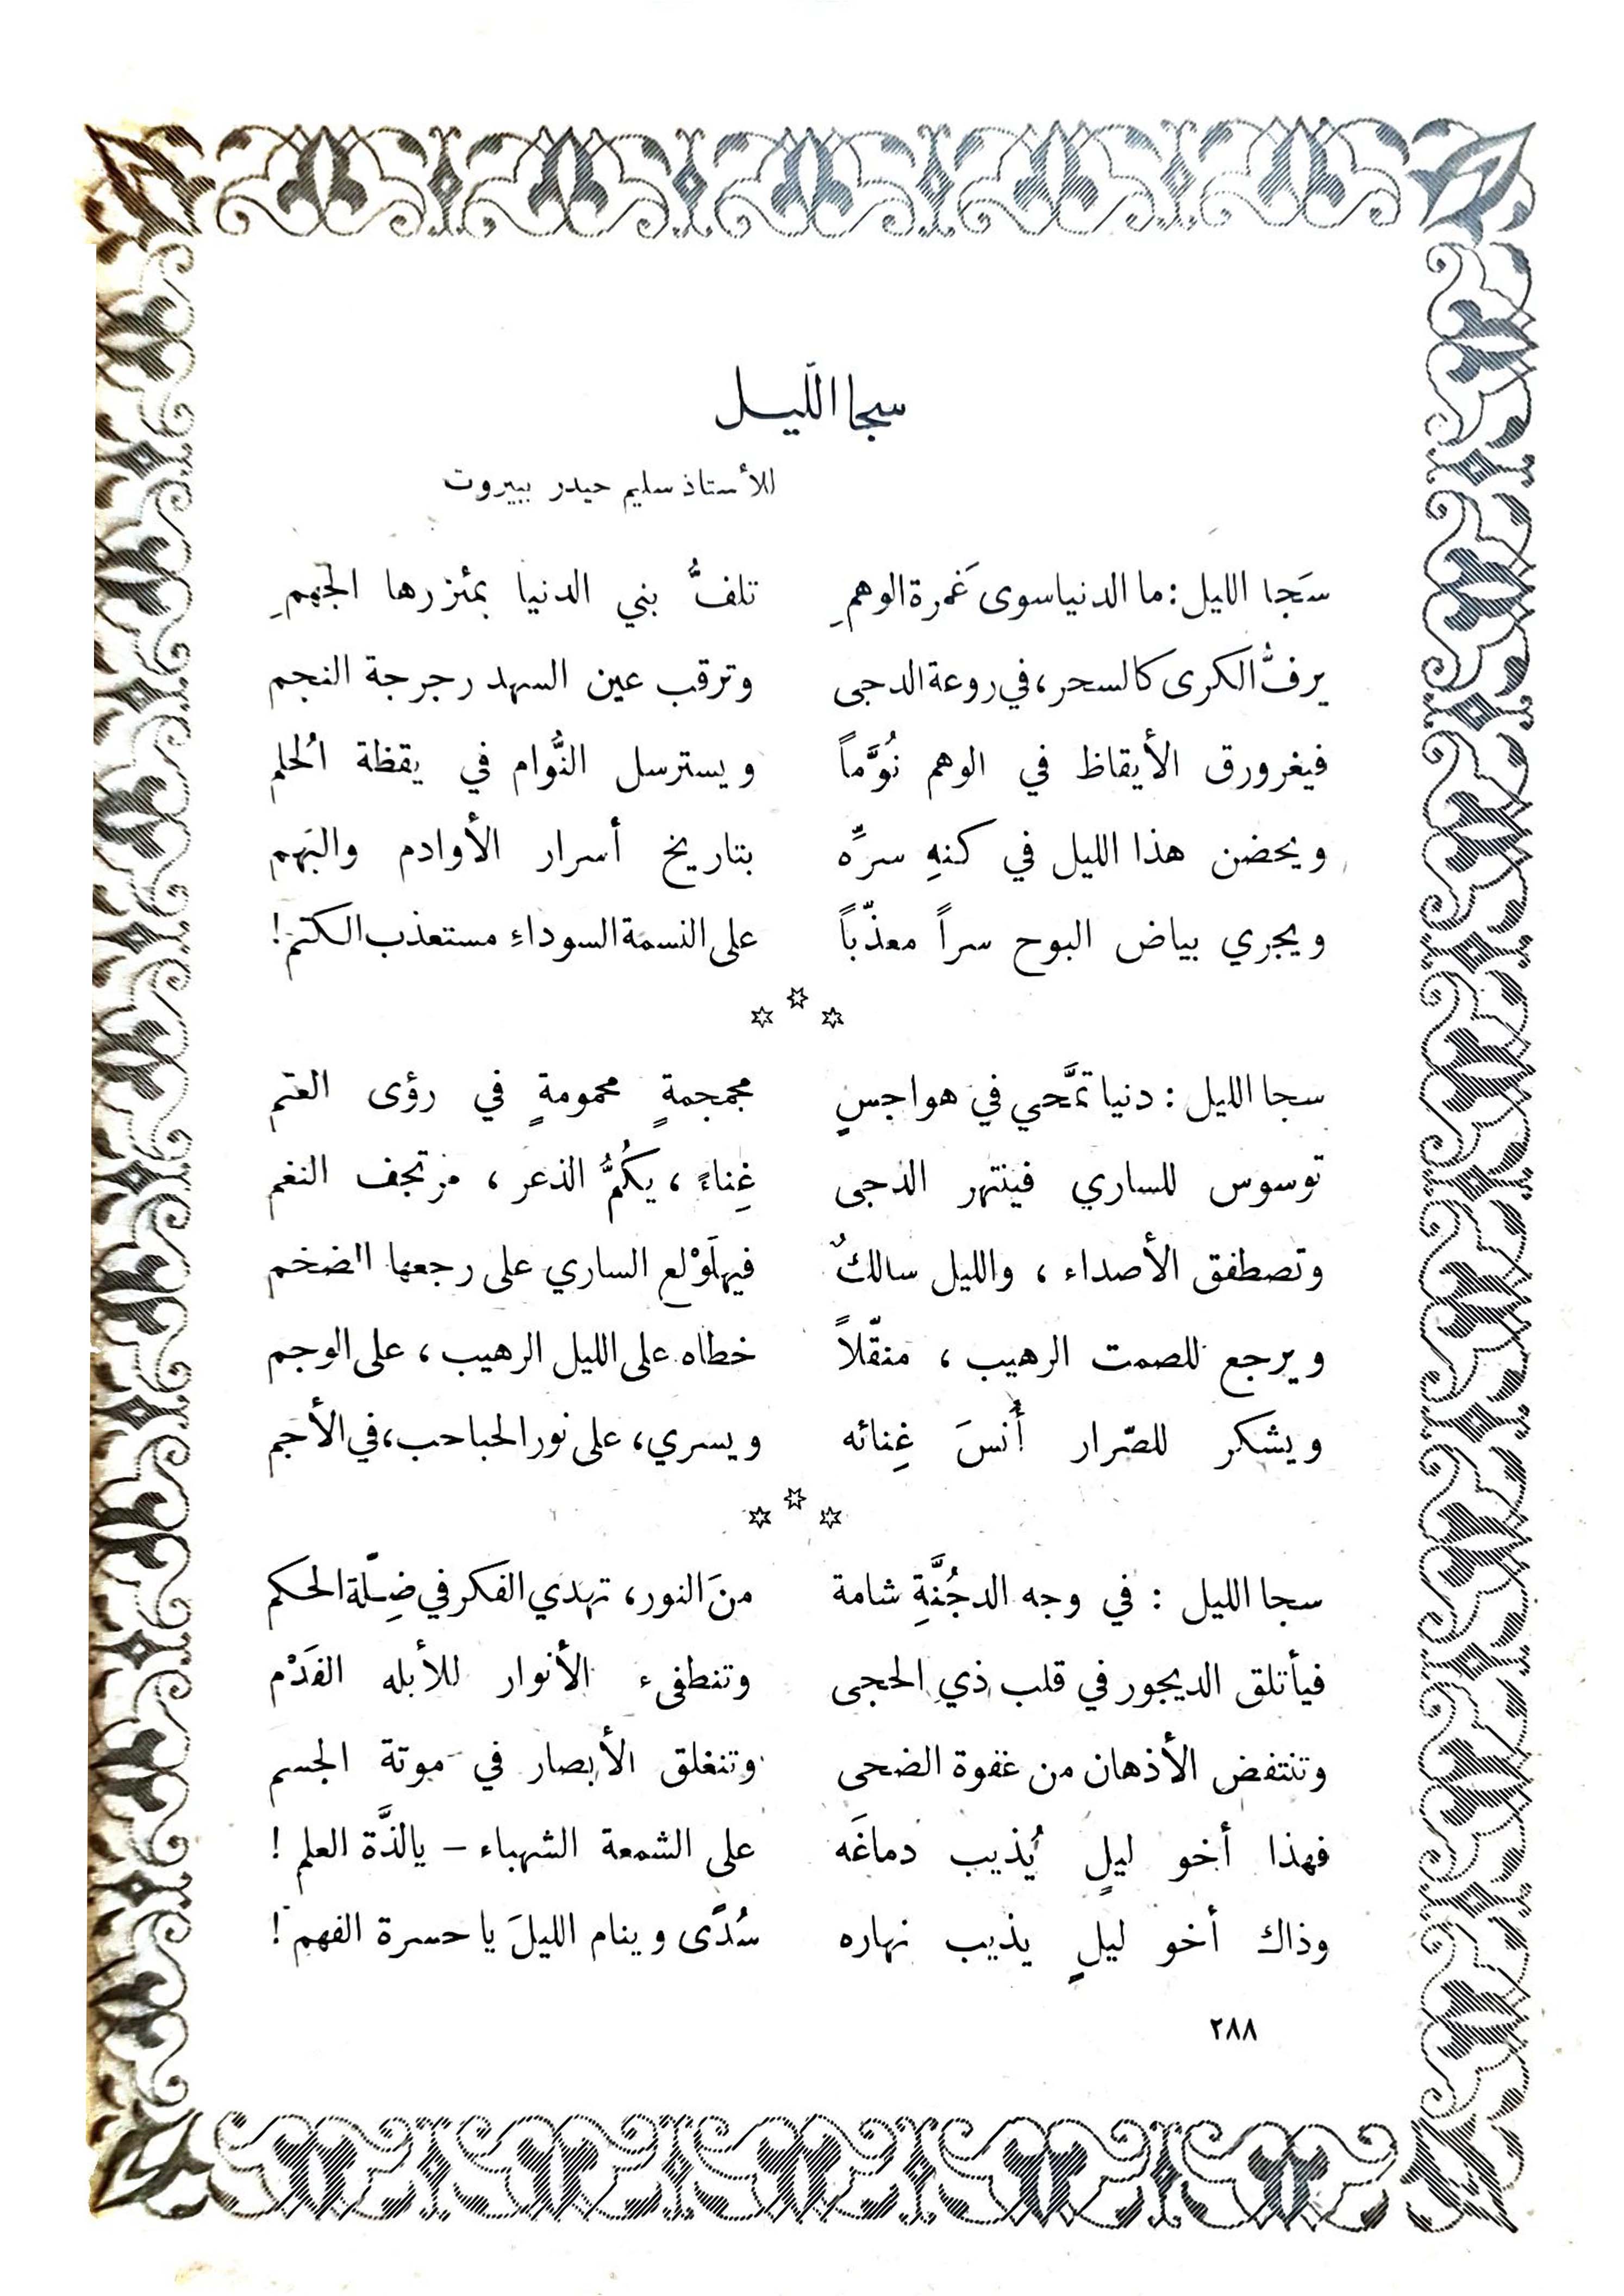 سجا اللّيل
للأستاذ سليم حيدر ببيروت
سَجا الليل: ما الدنيا سوى غَمرة الوهمِ تلفُّ بني الدنيا بمئزرها الجَهمِ
يرفُّ الكرى كالسحر، في روعة الدجى وترقب عين السهد رجرجة النجم
فيغرورق الأيقاظ في الوهم نُوَّماً ويسترسل النُّوام في يقظة الُحلم
ويحضن هذا الليل في كنهِ سرِّه بتاريخ أسرار الأوادم والبَهم
ويجري بياض البوح سراً معذّباً على النسمة السوداءِ مستعذب الكتم!
سجا الليل : دنيا تمَّحي في هواجسٍ مجمجمةٍ محمومةٍ في رؤى العتم
توسوس للساري فينتهر الدجى غِناءً ، يكُمُّ الذعر ، مرتجف النغم
وتصطفق الأصداء ، والليل سالكٌ فيهلَوْلع الساري على رجعها الضخم
ويرجع للصمت الرهيب ، منقّلاً خطاه على الليل الرهيب ، على الوجم
ويشكر للصّرار أُنسَ غِنائه ويسري، على نور الحباحب، في الأجم
سجا الليل : في وجه الدجُنَّةِ شامة منَ النور، تهدي الفكر في ضِلّة الحكم
فيأتلق الديجور في قلب ذي الحجى وتنطفىء الأنوار للأبله الفَدْم
وتنتفض الأذهان من غفوة الضحى وتنغلق الأبصار في موتة الجسم
فهذا أخو ليلٍ يُذيب دماغَه على الشمعة الشهباء – يا لذَّة العلم !
وذاك أخو ليلٍ يذيب نهاره سُدًى وينام الليلَ يا حسرة الفهم !
٢٨٨